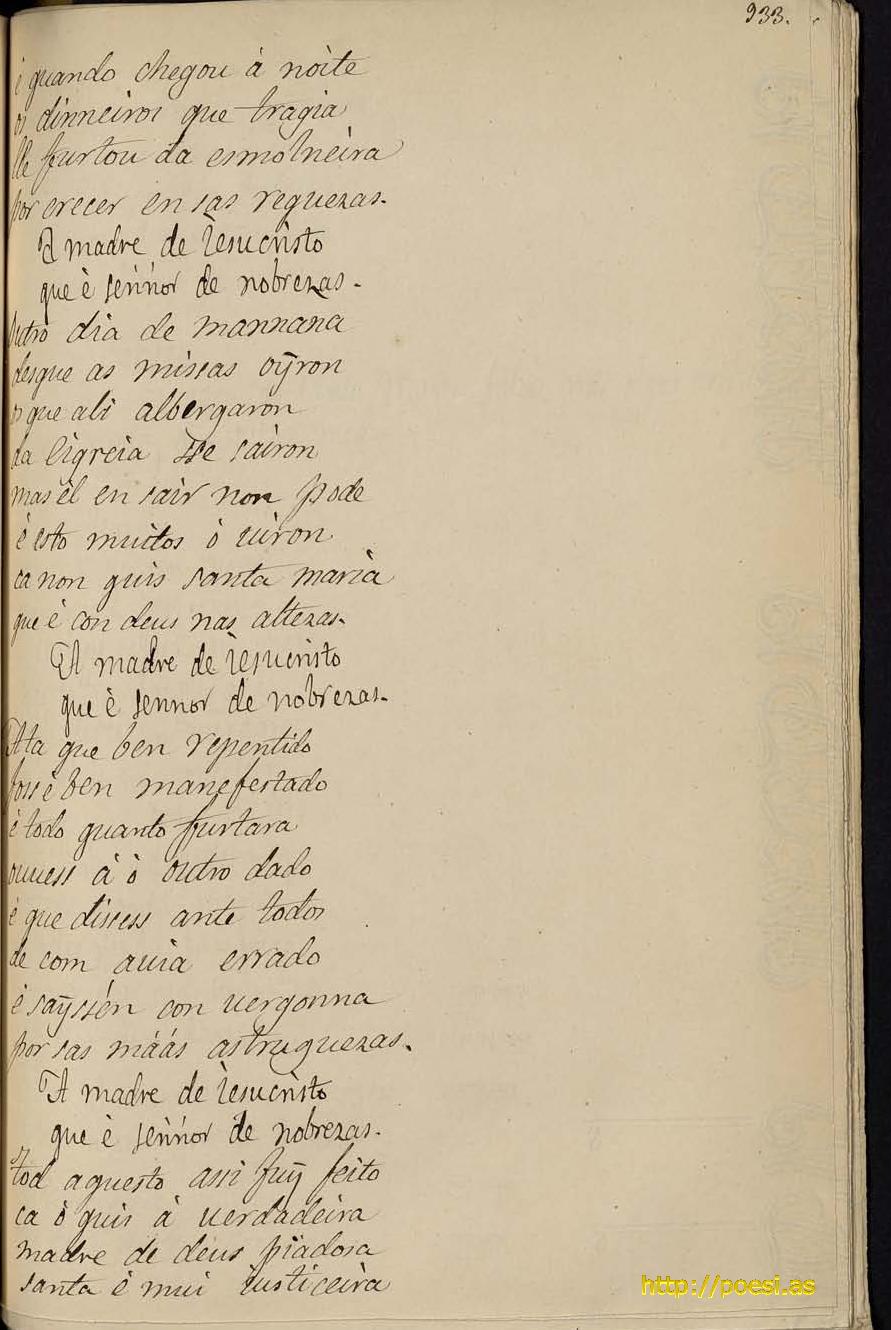 933.
é quando chegou á noite
os dinneiros que tragia
lle furtou da esmolneira
por crecer en sas requezas.
A madre de iesucristo
que é sennor de nobrezas.
Outro dia de mannana
desque as missas oÿron
os que ali albergaron
da eigreia sse sairon
mas él en sair non pode
é esto muitos ó uiron
ca non quis santa maria
que é con deus nas altezas.
A madre de iesucristo
que é sennor de nobrezas.
Ata que ben repentido
foss é ben manefestado
é todo quanto furtara
ouuess á ó outro dado
é que dissess ante todos
de com auia errado
é saÿssén con uergonna
por sas máás astruguezas.
A madre de iesucristo
que é sennor de nobrezas.
Tod aquesto assi fuÿ feito
ca ó quis á uerdadeira
madre de deus piadosa
santa é mui iusticeira
http://poesi.as